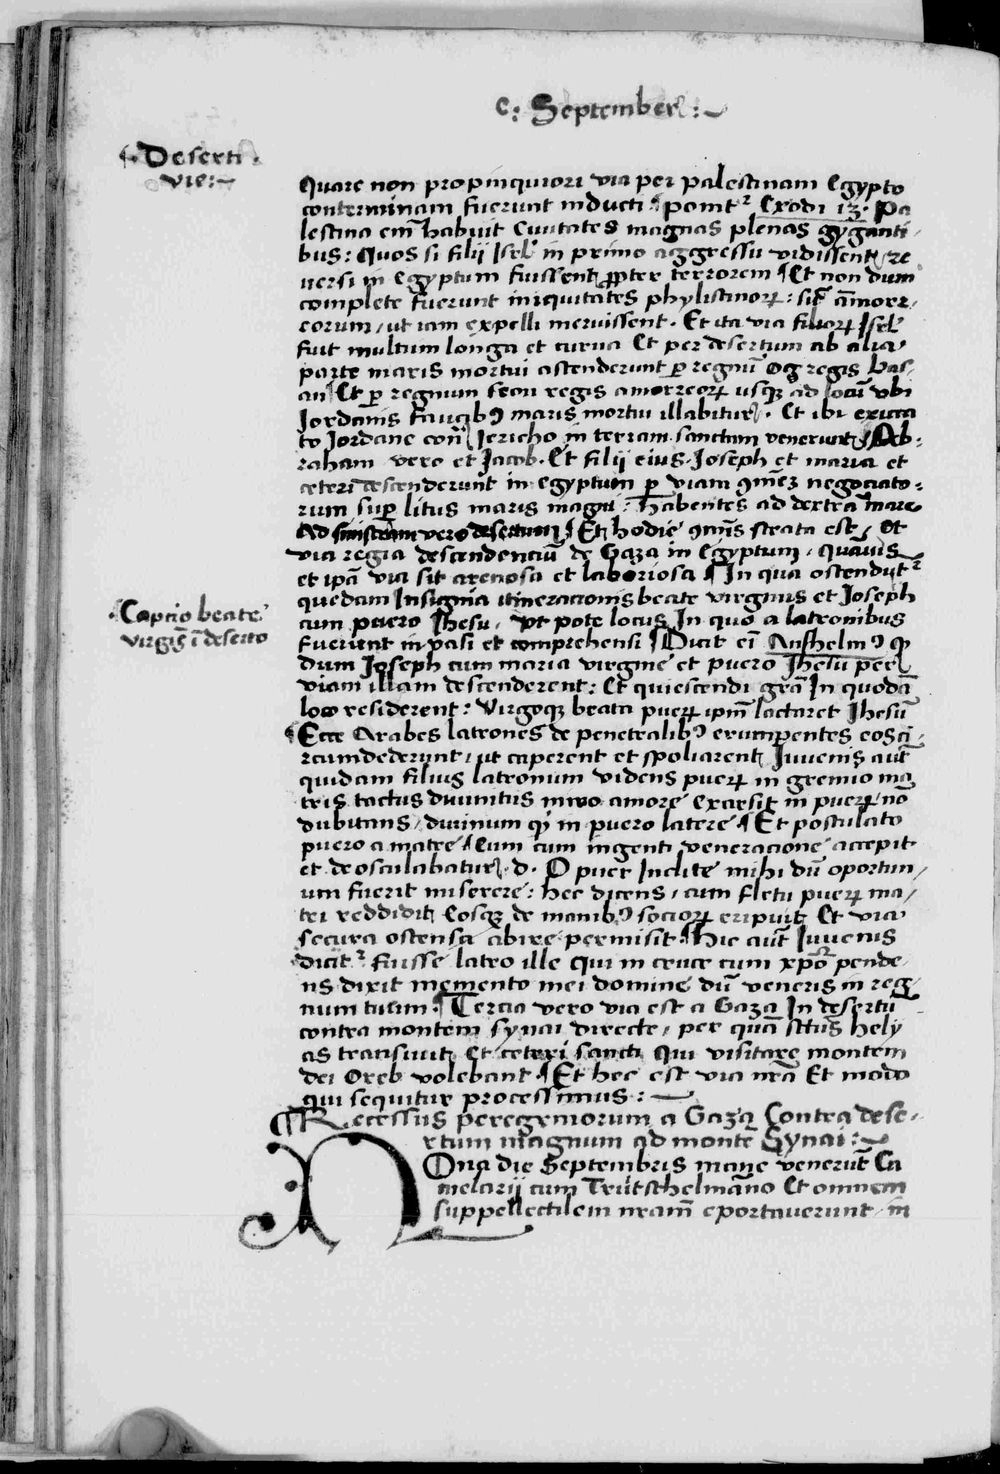 c: September :~
¶ Deserti
vie:~
Quare non propinquiori via per palestinam Egypto
conterminam fuerunt inducti ¶ ponitr Exodi 13. Pa
lestina eni habuit Civitates magnas plenas gyganti/
bus: Quos si filij Isrl in primo aggressu vidissent re
versi in Egyptum fuissent ꝓpter terrorem ¶ Et non dum
complete fuerunt iniquitates phylistinoꝝ: sic āmorr/
eorum / ut iam expelli meruissent. Et ita via filioꝝ Isrl
fuit multum longa et curva Et per desertum ab alia
parte maris mortui ascenderunt ꝑ regnū Og regis bas/
an ¶ Et ꝑ regnum seon regis amorreoꝝ usqꝫ ad locū ubi
Jordanis faucibꝰ maris mortui illabitur. Et ibi exicca
to Jordane cont̄ Jericho in terram sanctam venerunt ¶ Ab:
raham vero et Jacob. Et filij eius. Joseph et maria et
ceteri descenderunt in egyptum ꝑ viam ꝯmūeꝫ negociato:
rum sup litus maris magni: Habentes ad dextrā mare
Ad sinistram vero desertum ¶ Et hodie ꝯmūis strata est, et
via regia descendenciū de Gaza in Egyptum, quāvis
et ip̄a via sit arenosa et laboriosa ¶ In qua ostenduntr
quedam Insignia itineracionis beate virginis et Joseph
¶ Captio beate
virgīs ī deserto
cum puero Jhesu, ut pote locus In quo a latronibus
fuerunt invasi et comprehensi ¶ Dicit eī Anshelmꝰ ꝙ
dum Joseph cum maria virgine et puero Jhesu per
viam illam descenderent: Et quiescendi grā In quodā
loco residerent: Virgoqꝫ beata pueꝝ ipm̄ lactaret Jhesū
¶ Ecce Arabes latrones de penetralibꝰ erumpentes eos ci/
rcumdederunt, ut caperent et spoliarent Juvenis aut̄
quidam filius latronum videns pueꝝ in gremio ma
tris tactus divinitus miro amore exarsit in pueꝝ nō
dubitans, divinum qͥ in puero latere ¶ Et postulato
puero a matre ¶ Eum cum ingenti veneracione accepit
et deosculabatur .d. O puer Inclite mihi dū oportun/
um fuerit miserere: hec dicens, cum fletu pueꝝ ma/
tri reddidit Eosqꝫ de manibꝰ socioꝝ eripuit Et via
secura ostensa abire permisit ¶ Hic aut̄ Juvenis
dicitr fuisse latro ille qui in cruce cum xp̄o pende
ns dixit memento mei domine dū veneris in reg/
num tuum ¶ Tercia vero via est a Gaza In desertū
contra montem synai directe, per quā sctūs hely
as transivit Et ceteri sancti Qui visitare montem
dei Oreb volebant ¶ Et hec est via nr̄a Et modo
qui sequitur processimus:~
¶ Recessus peregrinorum a Gaza Contra dese/
rtum magnum ad montē Synai:~
NOna die Septembris mane venerūt Ca
melarij cum Trütschelmāno Et omnem
suppellectilem nr̄am eportaverunt, in